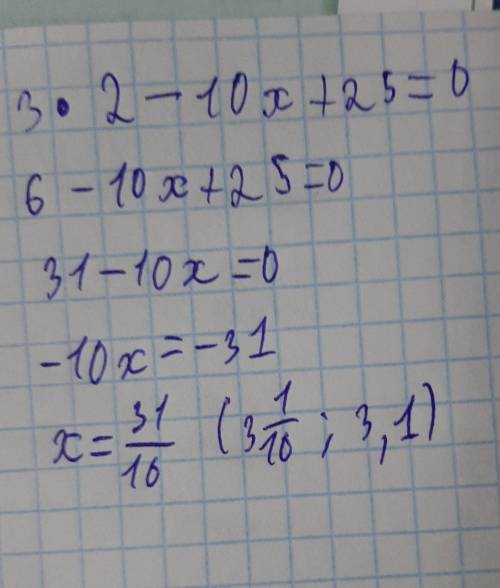 3 · 2 − 10x + 25 = 0
6 − 10x + 25 = 0
31 − 10x = 0
−10x = −31
x = 31/10 (3 1/10 ; 3,1)